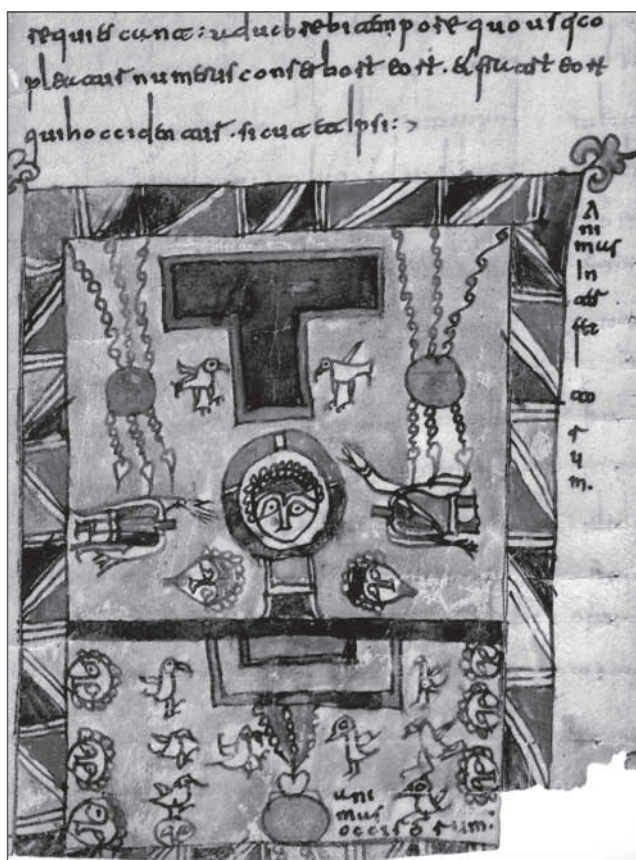 requiescunt: aduc brebi tempore quousq co
pleatur numerus conserbor eor. et fratr eor
qui hoccidentur. sicut et ipsi:
A
ni
mas
In
ter
fec
to
r
u
m.
ani
mas
occisorum.